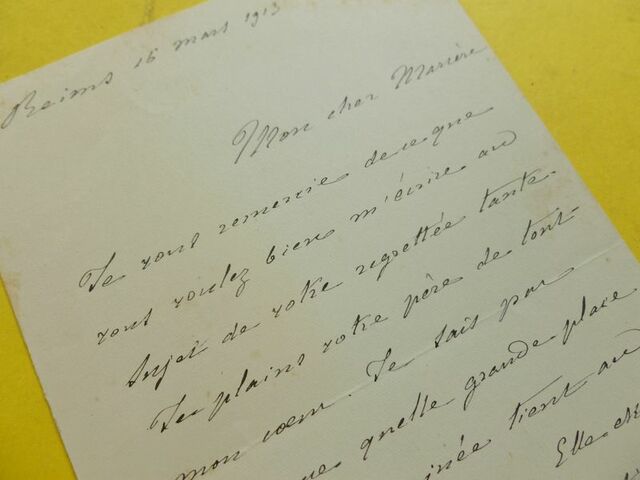 Reims 16 mars 1913
Mon cher
Je vous remercie de ce que
vous voulez bien m'écrire au
sujet de votre regrettée tante.
Je plains votre père de tout
mon cœur. Je sais par
que quelle grande place
tient au
Elle